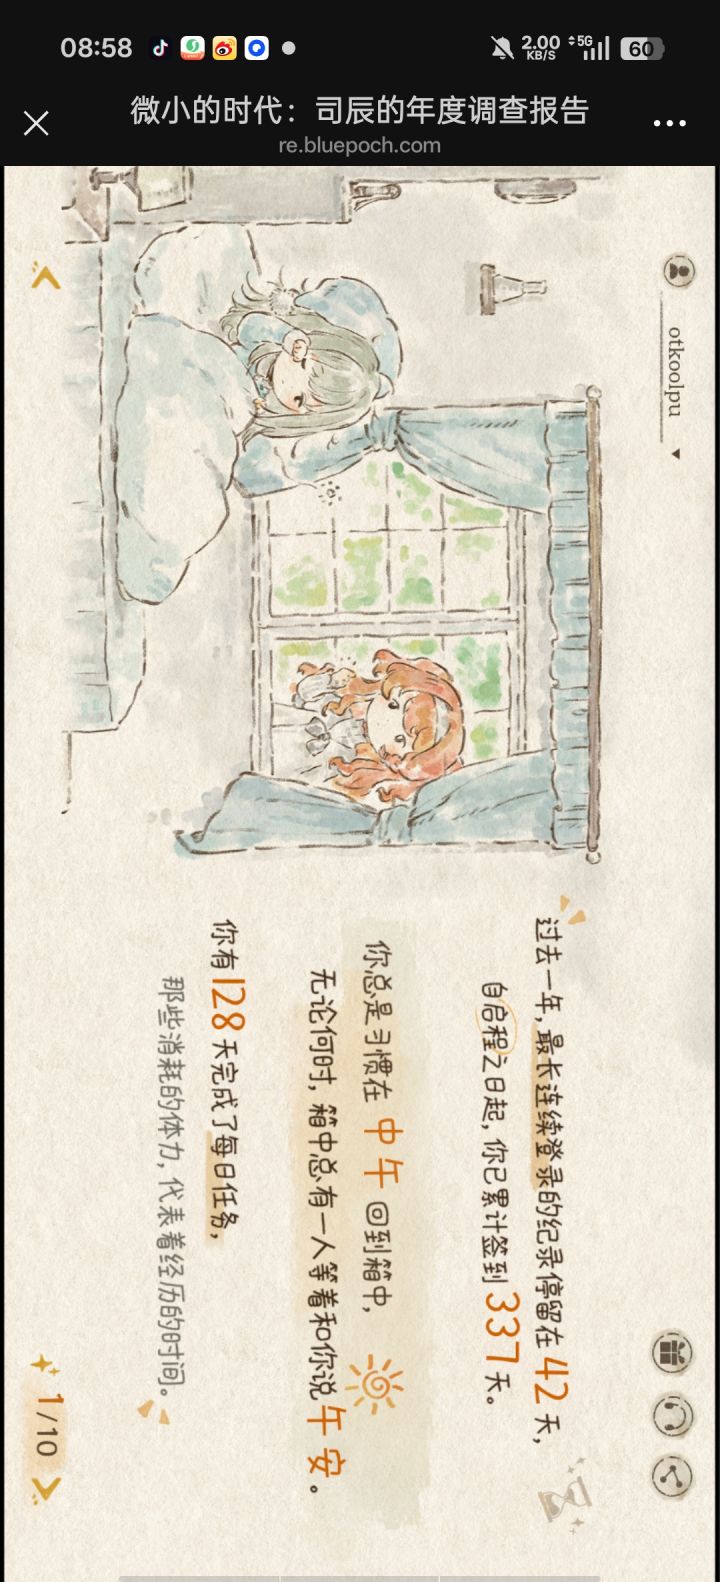 08:58
2.00 KB/S
5G
60
微小的时代：司辰的年度调查报告
re.bluepoch.com
otkoolpu
过去一年，最长连续登录的纪录停留在 42 天，
自启程之日起，你已累计签到 337 天。
你总是习惯在 中午 回到箱中，
无论何时，箱中总有一人等着和你说 午安。
你有 128 天完成了每日任务，
那些消耗的体力，代表着经历的时间。
1/10